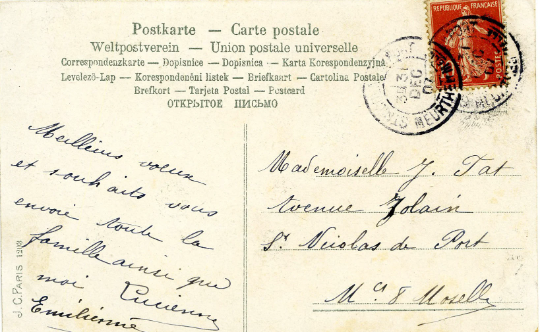 Postkarte — Carte postale
Weltpostverein — Union postale universelle
Correspondenzkarte — Dopisnice — Dopisnica — Karta Korespondenzyjna
Levelező-Lap — Korespondenční listek — Briefkaart — Cartolina Postale
Brefkort — Tarjeta Postal — Postcard
ОТКРЫТОЕ ПИСЬМО
REPUBLIQUE FRANÇAISE
POSTES
DEC
MEURTHE
Meilleurs voeux
et souhaits vous
envoie toute la
famille ainsi que
moi Lucienne
Emilienne
Mademoiselle J. Tat
Avenue Jolain
St Nicolas de Port
Mthe & Moselle
J.C. PARIS